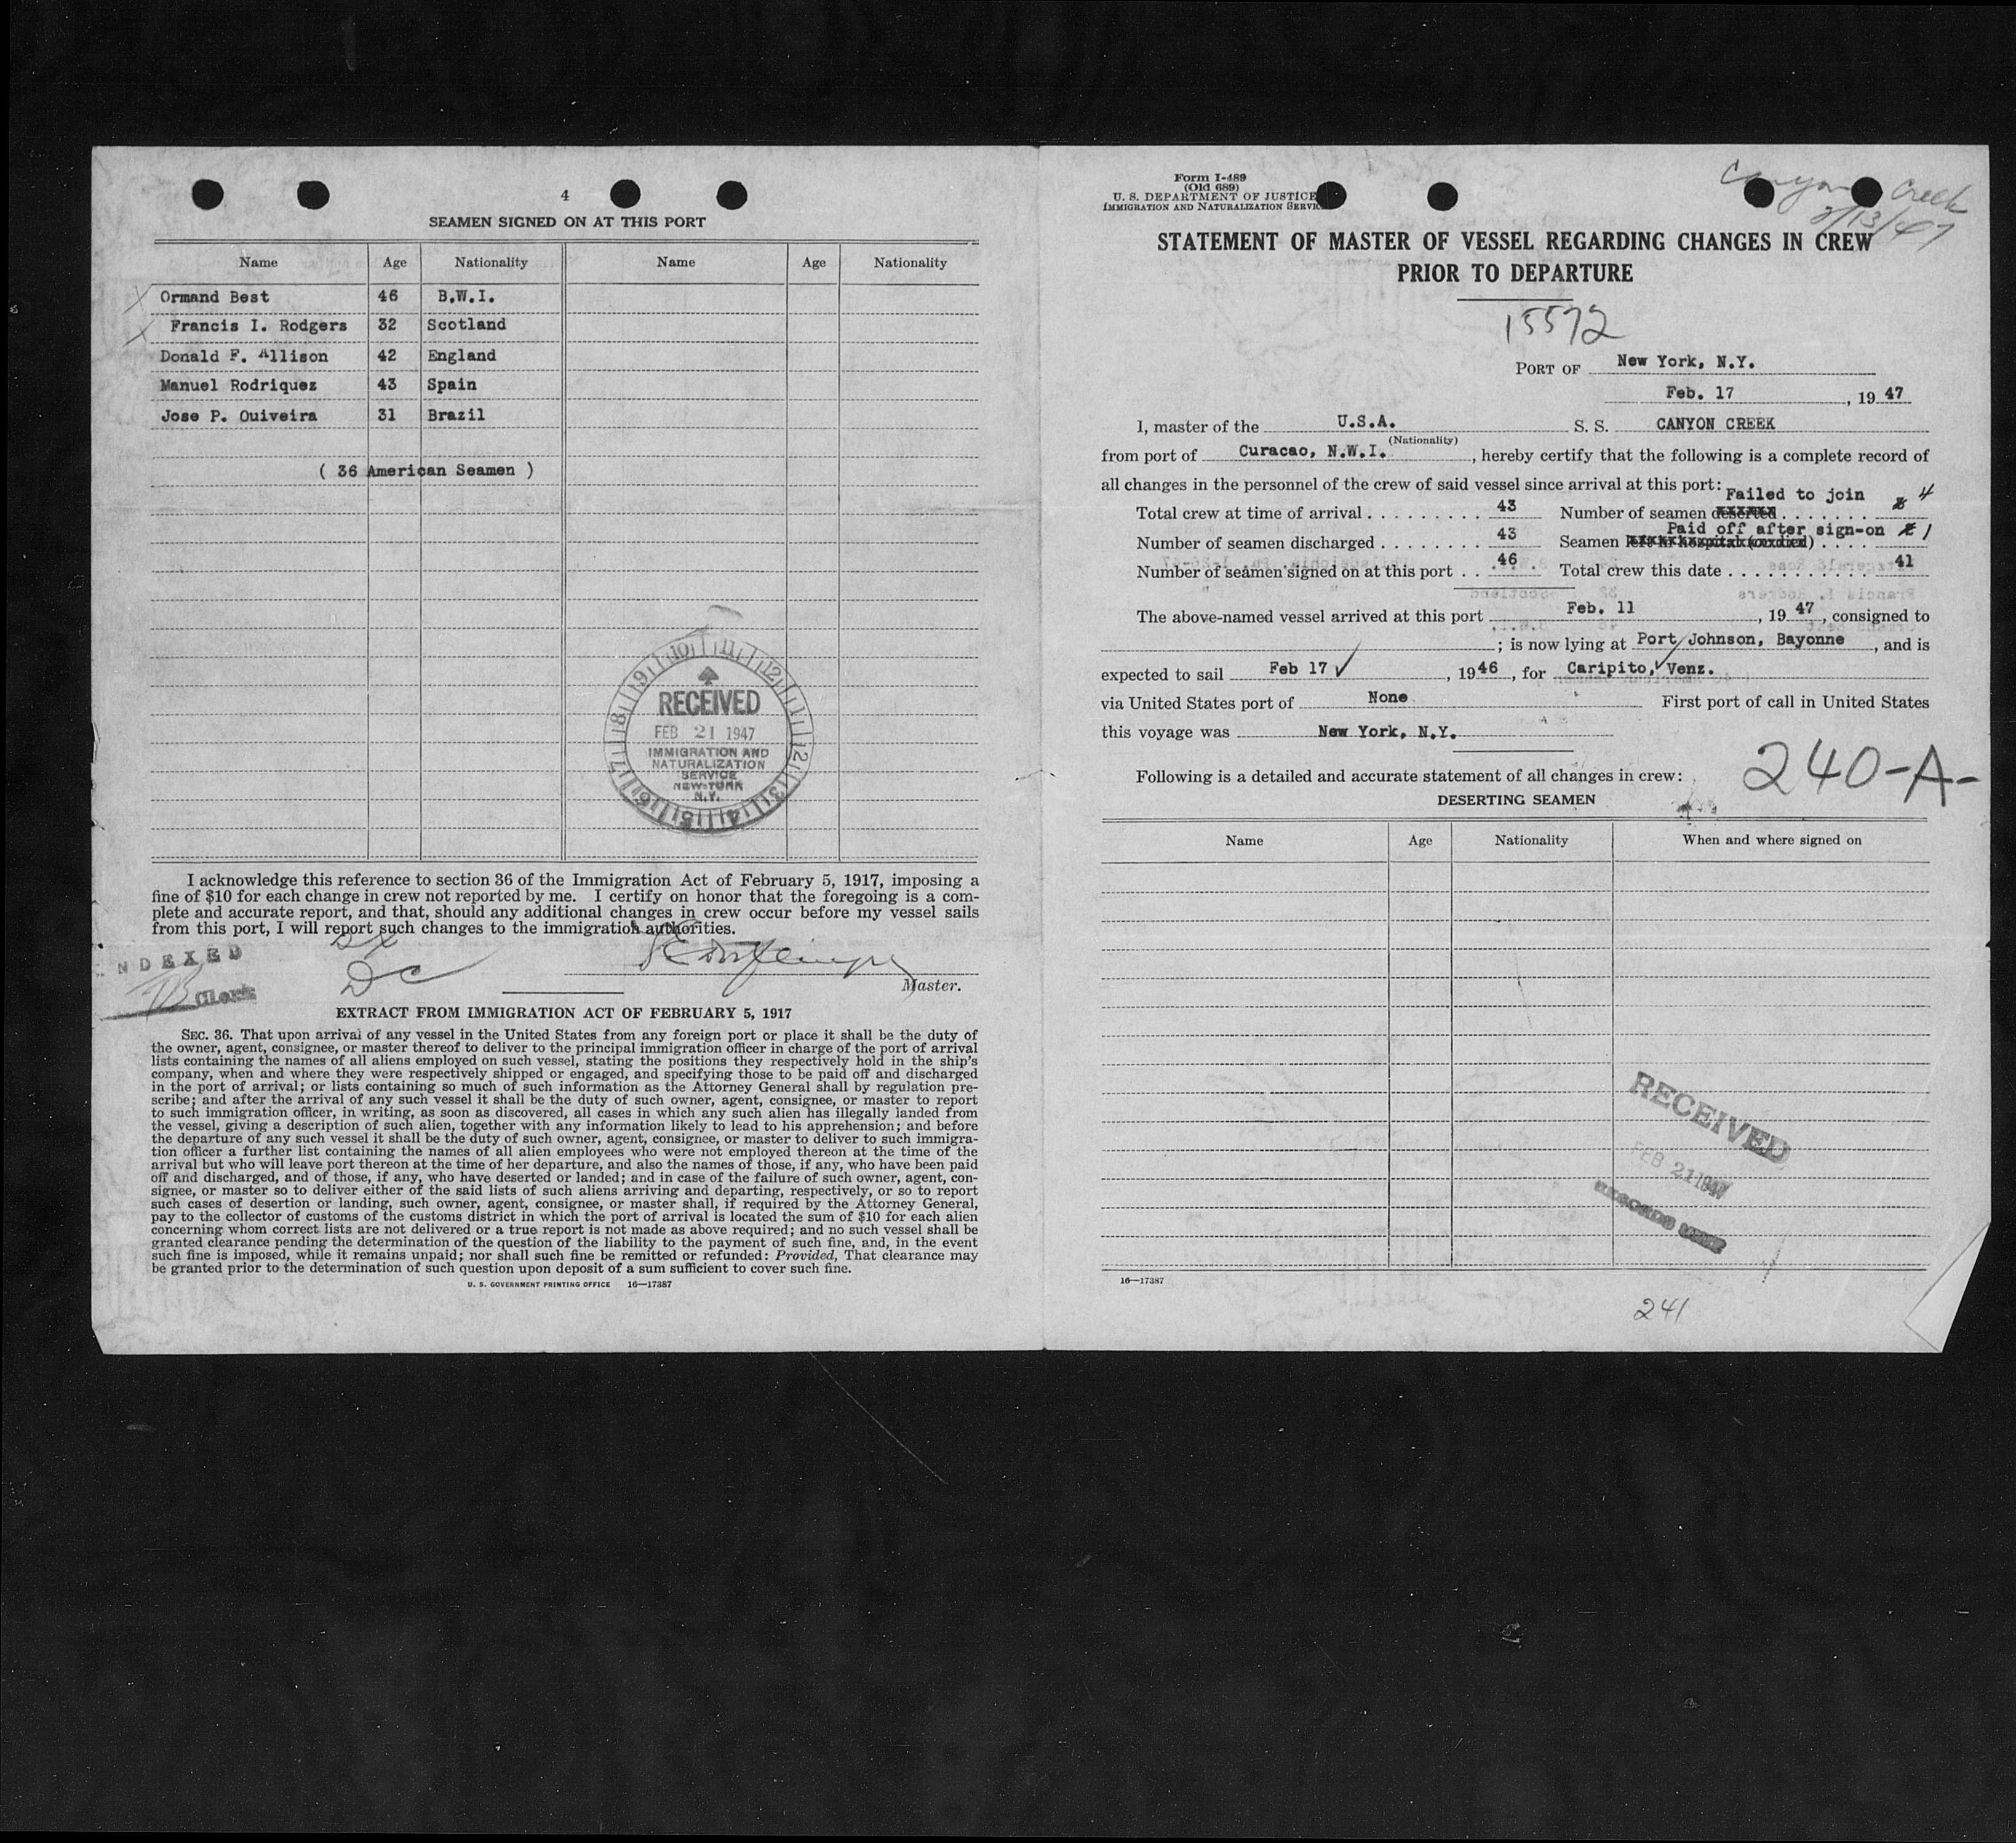 4
SEAMEN SIGNED ON AT THIS PORT
Name Age Nationality Name Age Nationality
Ormand Best 46 B.W.I.
Francis I. Rodgers 32 Scotland
Donald F. Allison 42 England
Manuel Rodriquez 43 Spain
Jose P. Ouiveira 31 Brazil
( 36 American Seamen )
RECEIVED
FEB 21 1947
IMMIGRATION AND
NATURALIZATION
SERVICE
NEW YORK
N.Y.
I acknowledge this reference to section 36 of the Immigration Act of February 5, 1917, imposing a
fine of $10 for each change in crew not reported by me. I certify on honor that the foregoing is a com-
plete and accurate report, and that, should any additional changes in crew occur before my vessel sails
from this port, I will report such changes to the immigration authorities.
NDEXED
Clerk
DC
Master.
EXTRACT FROM IMMIGRATION ACT OF FEBRUARY 5, 1917
SEC. 36. That upon arrival of any vessel in the United States from any foreign port or place it shall be the duty of
the owner, agent, consignee, or master thereof to deliver to the principal immigration officer in charge of the port of arrival
lists containing the names of all aliens employed on such vessel, stating the positions they respectively hold in the ship's
company, when and where they were respectively shipped or engaged, and specifying those to be paid off and discharged
in the port of arrival; or lists containing so much of such information as the Attorney General shall by regulation pre-
scribe; and after the arrival of any such vessel it shall be the duty of such owner, agent, consignee, or master to report
to such immigration officer, in writing, as soon as discovered, all cases in which any such alien has illegally landed from
the vessel, giving a description of such alien, together with any information likely to lead to his apprehension; and before
the departure of any such vessel it shall be the duty of such owner, agent, consignee, or master to deliver to such immigra-
tion officer a further list containing the names of all alien employees who were not employed thereon at the time of the
arrival but who will leave port thereon at the time of her departure, and also the names of those, if any, who have been paid
off and discharged, and of those, if any, who have deserted or landed; and in case of the failure of such owner, agent, con-
signee, or master so to deliver either of the said lists of such aliens arriving and departing, respectively, or so to report
such cases of desertion or landing, such owner, agent, consignee, or master shall, if required by the Attorney General,
pay to the collector of customs of the customs district in which the port of arrival is located the sum of $10 for each alien
concerning whom correct lists are not delivered or a true report is not made as above required; and no such vessel shall be
granted clearance pending the determination of the question of the liability to the payment of such fine, and, in the event
such fine is imposed, while it remains unpaid; nor shall such fine be remitted or refunded: Provided, That clearance may
be granted prior to the determination of such question upon deposit of a sum sufficient to cover such fine.
U. S. GOVERNMENT PRINTING OFFICE 16—17387
Form I-489
(Old 689)
U. S. DEPARTMENT OF JUSTICE
IMMIGRATION AND NATURALIZATION SERVICE
Canyon Creek
2/13/47
STATEMENT OF MASTER OF VESSEL REGARDING CHANGES IN CREW
PRIOR TO DEPARTURE
15572
PORT OF New York, N.Y.
Feb. 17, 1947
I, master of the U.S.A. S. S. CANYON CREEK
(Nationality)
from port of Curacao, N.W.I., hereby certify that the following is a complete record of
all changes in the personnel of the crew of said vessel since arrival at this port:
Failed to join
Total crew at time of arrival . . . . . . . . . . 43 Number of seamen deserted . . . . . . . 4
Paid off after sign-on
Number of seamen discharged . . . . . . . . 43 Seamen left in hospital (or died) . . . . 1
Number of seamen signed on at this port . . 46 Total crew this date . . . . . . . . . . . . 41
The above-named vessel arrived at this port Feb. 11, 1947, consigned to
; is now lying at Port Johnson, Bayonne, and is
expected to sail Feb 17, 1946, for Caripito, Venz.
via United States port of None First port of call in United States
this voyage was New York, N.Y.
Following is a detailed and accurate statement of all changes in crew:
240-A-
DESERTING SEAMEN
Name Age Nationality When and where signed on
RECEIVED
FEB 21 1947
16—17387
241